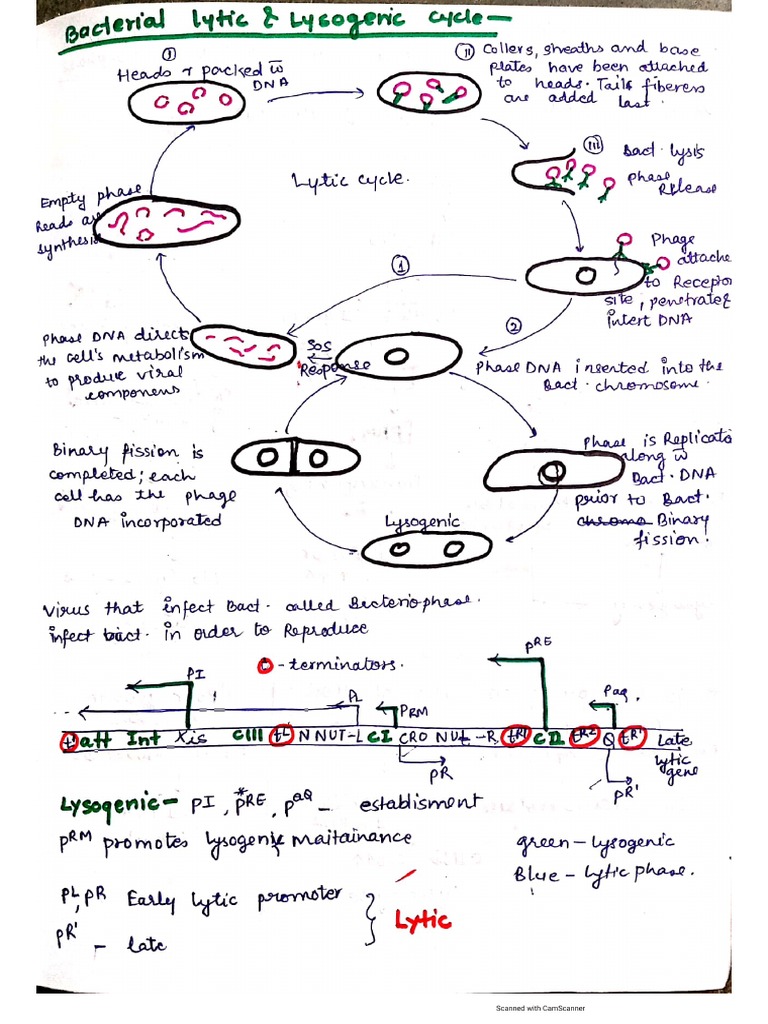 Bacterial lytic & Lysogenic cycle-
I
Heads r packed w̄
DNA
II
Collers, sheaths and base
plates have been attached
to heads. Tails fiberes
are added last.
III
Bact. lysis
phase
Release
Lytic cycle.
Empty phase
heads are
synthesis
1
Phage
attache
to Receptor
site, penetrate &
intert DNA
2
Phase DNA directs
the cell's metabolism
to produce viral
components
SOS
Response
Phase DNA inserted into the
Bact. chromosome.
Binary fission is
completed; each
cell has the phage
DNA incorporated
Phase is Replicatio
along w̄
Bact. DNA
prior to Bact.
chromo Binary
fission.
Lysogenic
Virus that infect Bact. called Becteriophase.
infect bact. in order to Reproduce
- terminators.
PI
PL
PRM
PRE
Paq.
t' att Int Xis CIII tL N NUT-L CI CRO NUT-R tR1 CII tR2 Q tR' Late
lytic
gene
PR
PR'
Lysogenic- PI, *PRE, Paq - establisment
PRM promotes lysogenic maitainance
green - lysogenic
Blue - lytic phase.
PL, PR Early lytic promoter
PR' - late
Lytic
Scanned with CamScanner